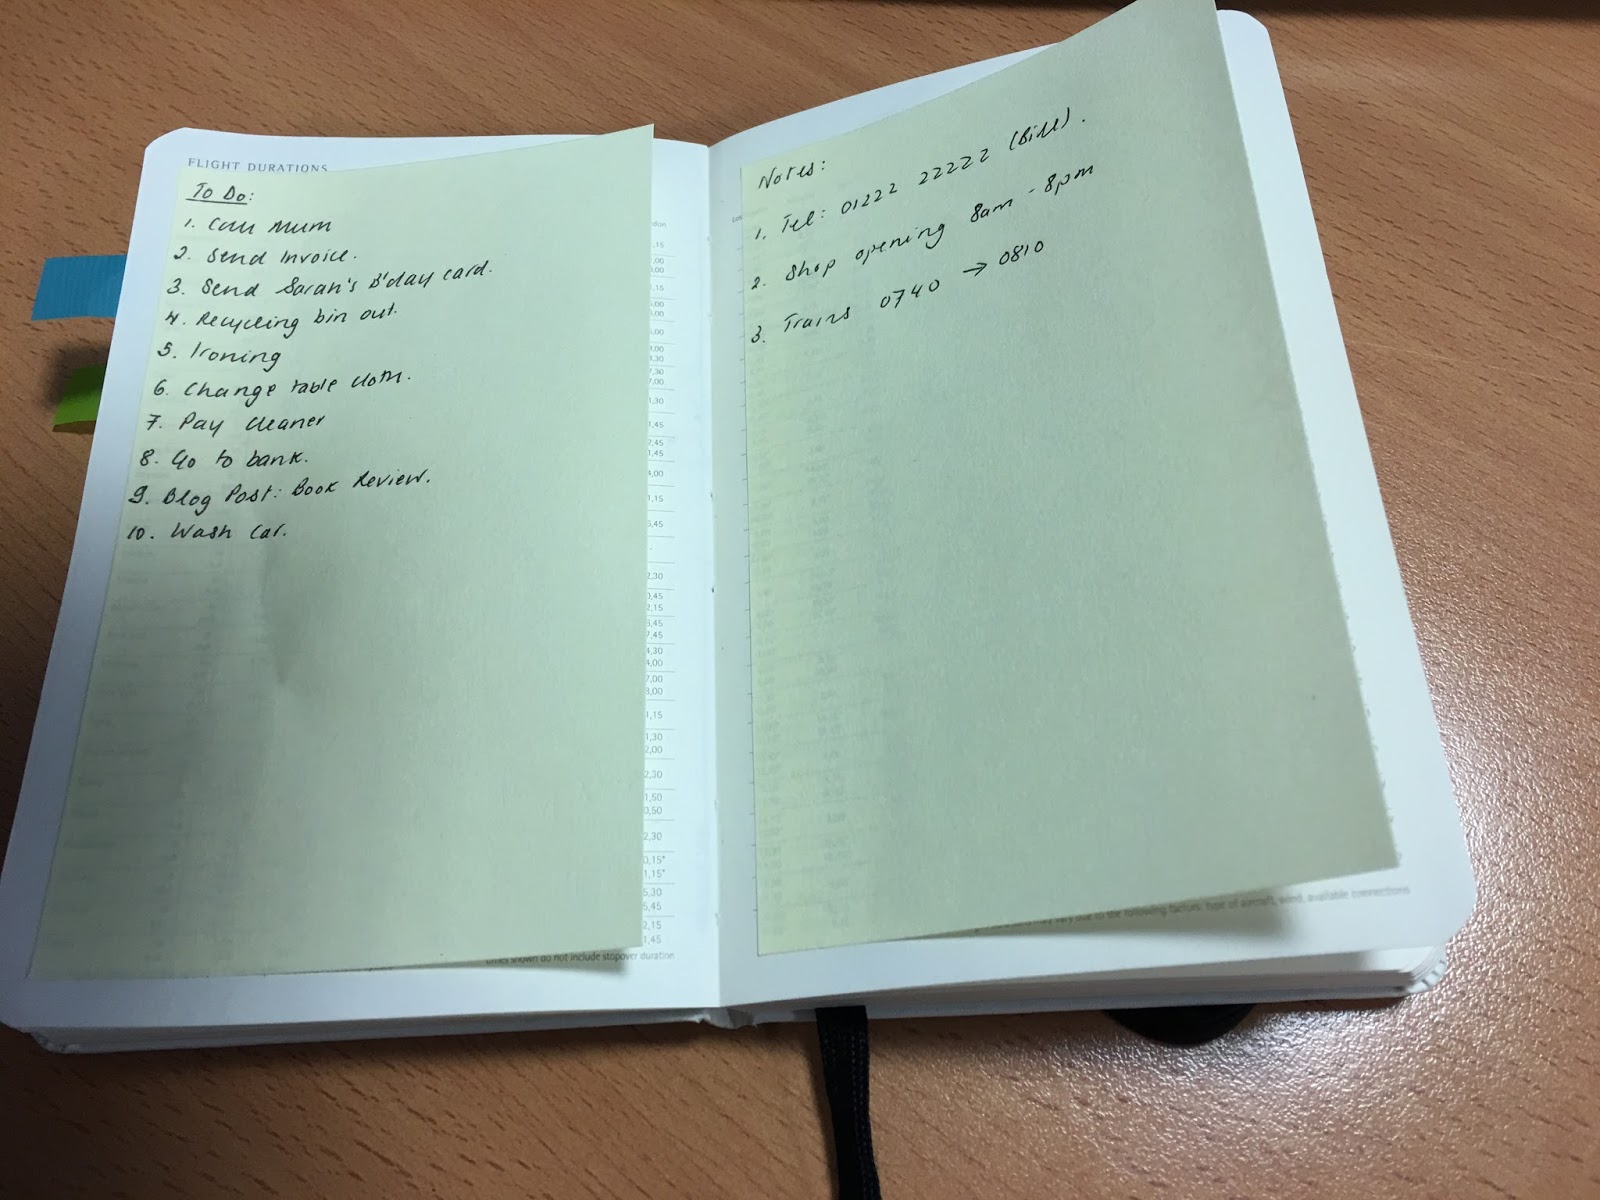 FLIGHT DURATIONS
To Do:
1. Call Mum
2. Send Invoice.
3. Send Sarah's B'day card.
4. Recycling bin out.
5. Ironing
6. Change table cloth.
7. Pay cleaner
8. Go to bank.
9. Blog Post: Book Review.
10. Wash Car.
times shown do not include stopover duration
Notes:
1. Tel: 01222 22222 (Bill).
2. Shop opening 8am - 8pm
3. Trains 0740 → 0810
may vary due to the following factors: type of aircraft, wind, available connections